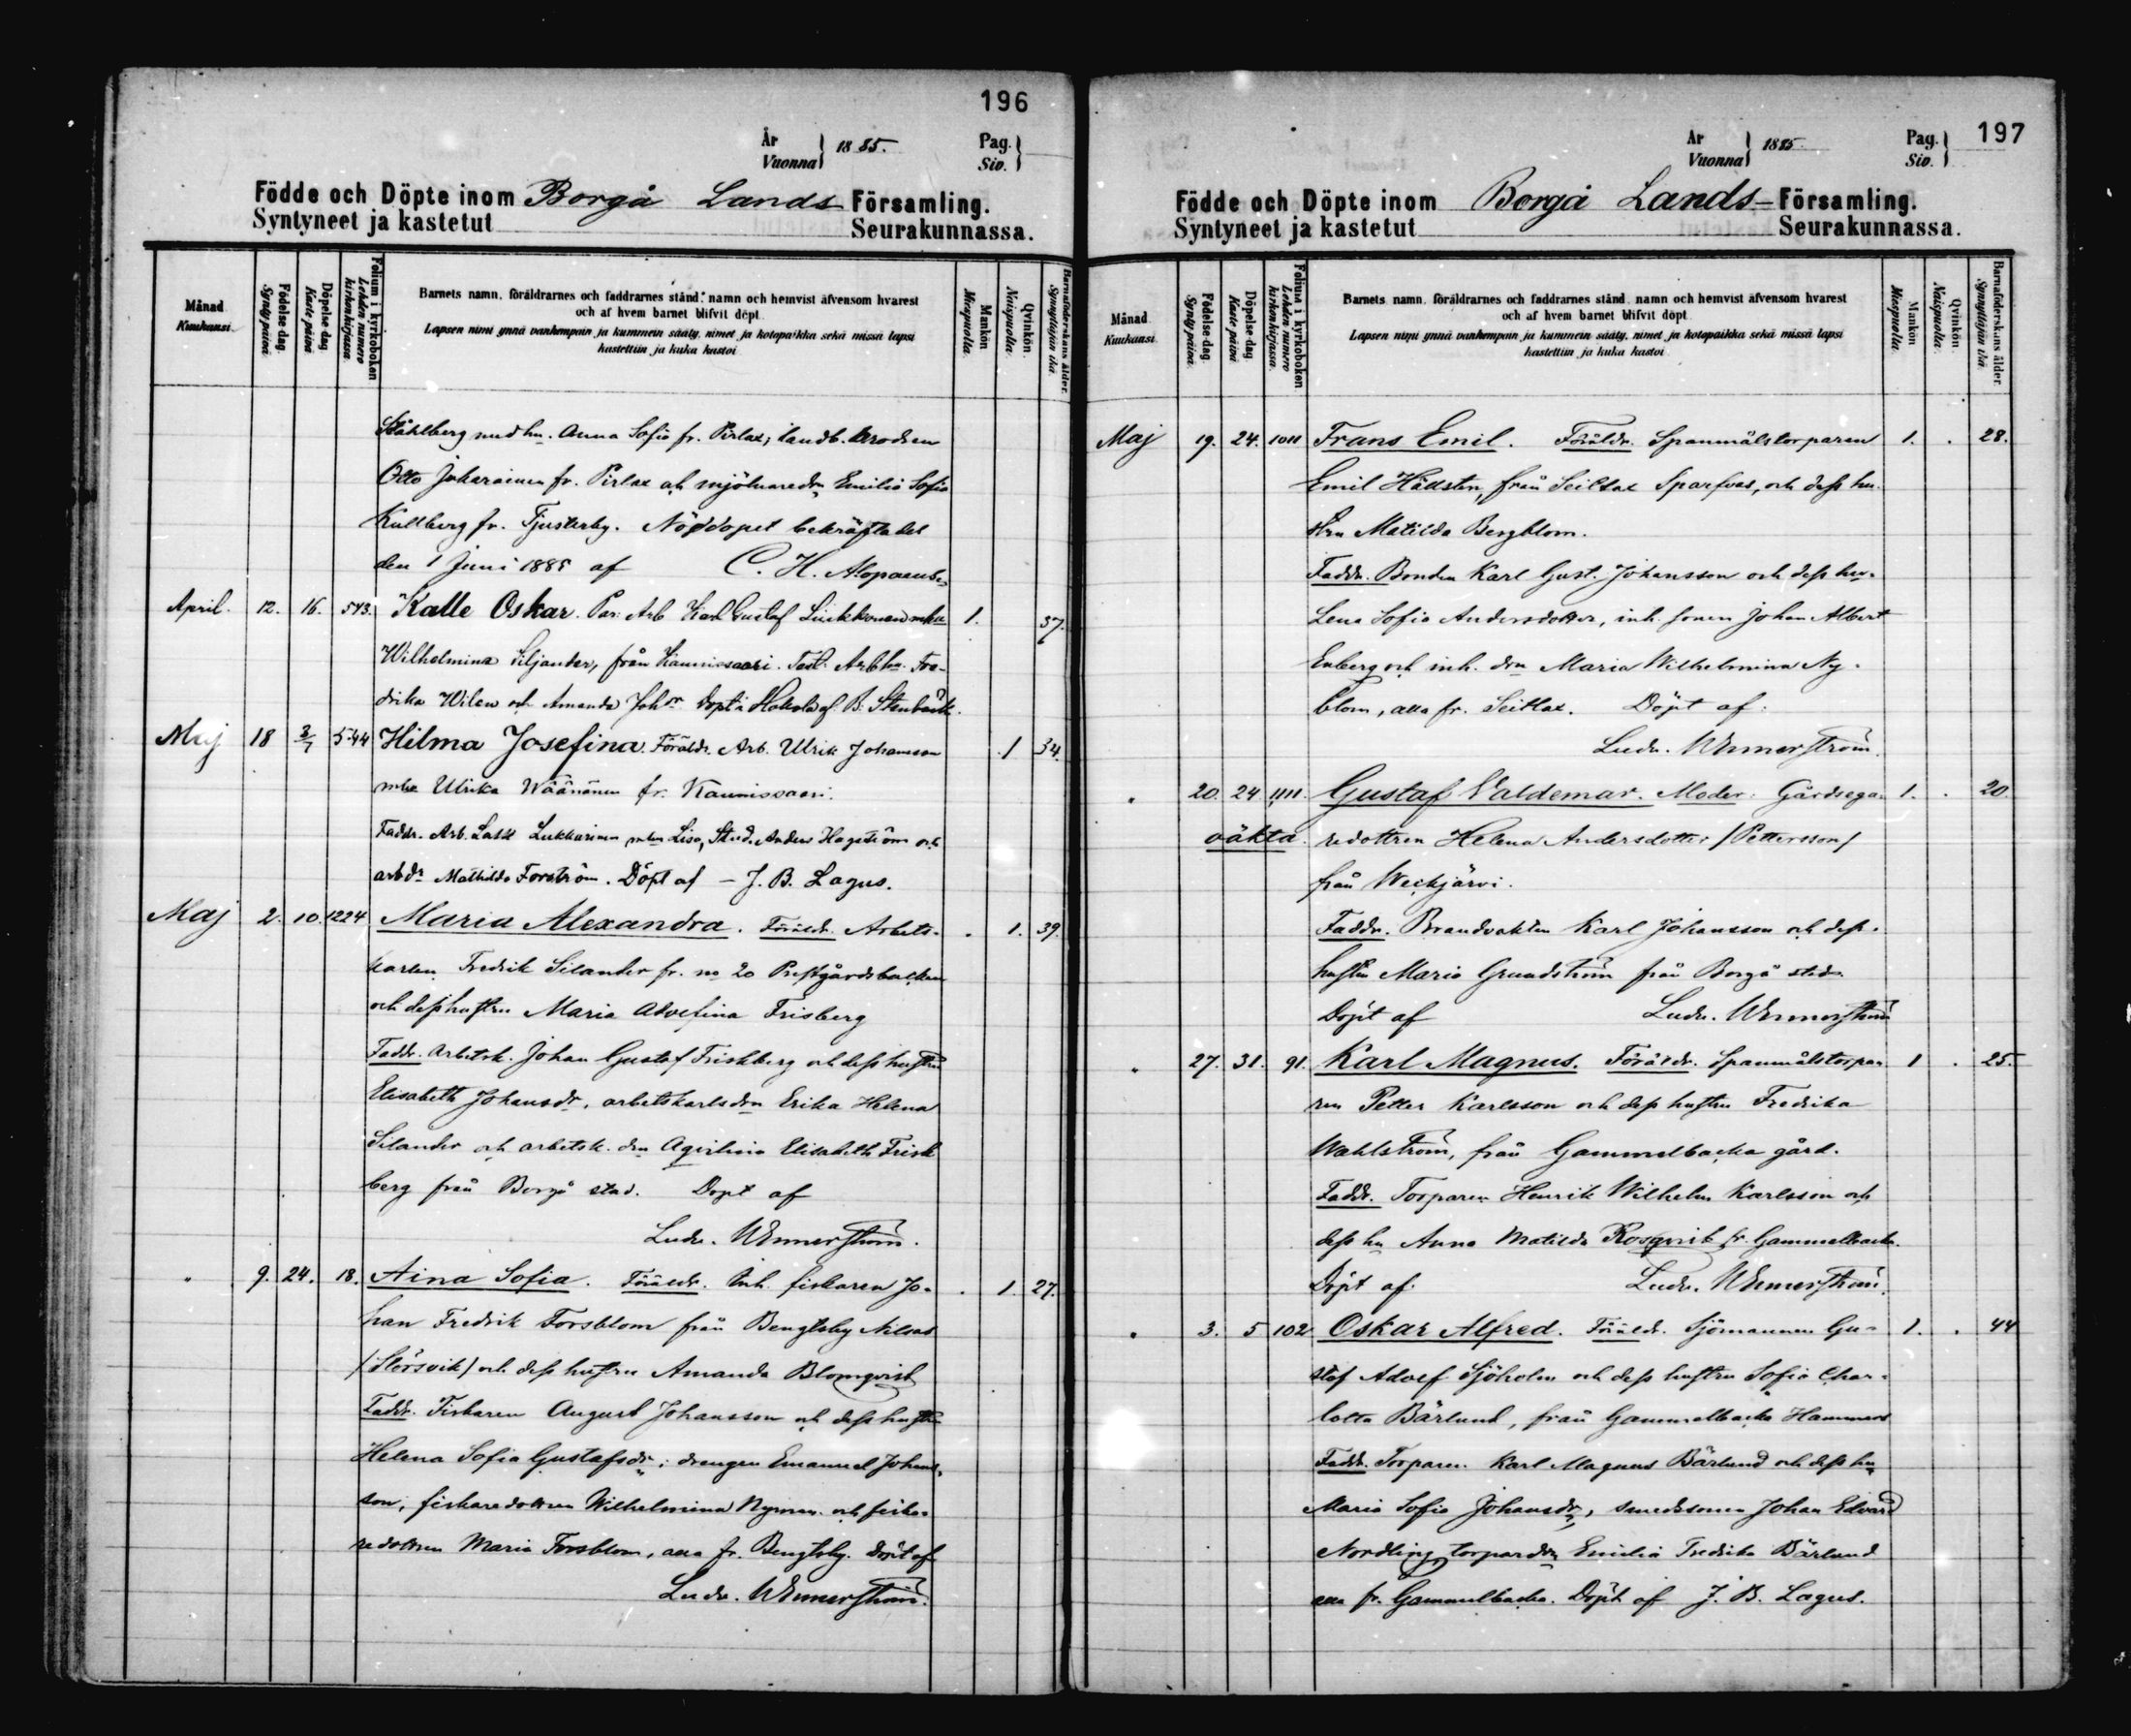 196
År
Vuonna } 1885.
Pag.
Siv. }
Födde och Döpte inom Borgå Lands Församling.
Syntyneet ja kastetut Seurakunnassa.
Månad
Kuukausi
Födelse-dag
Syntypäivä
Döpelse-dag
Kaste päivä
Folium i kyrkoboken
Lehden numero
kirkonkirjassa.
Barnets namn, föräldrarnes och faddrarnes stånd, namn och hemvist äfvensom hvarest
och af hvem barnet blifvit döpt
Lapsen nimi ynnä vanhempain ja kummein sääty, nimet ja kotopaikka sekä missä lapsi
kastettiin ja kuka kastoi
Mankön
Miespuolia.
Qvinkön
Naispuolia.
Barnaföderskans ålder.
Synnyttäjän ikä.
Ståhlberg med hu. Anna Sofia fr. Pirlax; landb.
Otto Juharainen fr. Pirlax och mjölnaredn Emilia Sofia
Kullberg fr. Tjusterby. Nöddopet bekräftadt
den 1 Juni 1885 af C. H. Alopaeus
April. 12. 16. 543. Kalle Oskar. Par. Arb Karl Gustaf Liukkonen mhu 1. 37.
Wilhelmina Siljander, från Kaunissaari. Test. Arbhu. Fre-
drika Wilen och Amanda Johdr Döpt i af B. Stenbäck.
Maj 18 3/7 544 Hilma Josefina. Föräldr. Arb. Ulrik Johansson 1 34.
mhu Ulrika Wäänänen fr. Kaunissaari.
Faddr. Arb. Lukkarinen mhu Lisa, Stud. Anders Hagström och
arbdr Mathilda Forström. Döpt af – J. B. Lagus.
Maj 2. 10. 1224 Maria Alexandra. Föräldr. Arbets- . 1. 39.
karlen Fredrik Silander fr. no 20 Prestgårdsbacken
och dess hustru Maria Adolfina Frisberg
Faddr. Arbetsk. Johan Gustaf Friskberg och dess hustru
Elisabeth Johansdr, arbetskarlsdrn Erika Helena
Silander och arbetsk. drn Elisabeth Frisk
berg från Borgå stad. Döpt af
Ludv. Wennerström.
" 9. 24. 18. Aina Sofia. Föräldr. Inh. fiskaren Jo- . 1. 27.
han Fredrik Forsblom från Bengtsby Nilsas
/Störsvik/ och dess hustru Amanda Blomqvist
Faddr. Fiskaren August Johansson och dess hustru
Helena Sofia Gustafsdr; drengen Emanuel Johans-
son, fiskaredottren Wilhelmina Nyman och fiska-
redottren Maria Forsblom, alla fr. Bengtsby. Döpt af
Ludv. Wennerström.
197
År
Vuonna } 1885.
Pag.
Siv. }
Födde och Döpte inom Borgå Lands- Församling.
Syntyneet ja kastetut Seurakunnassa.
Månad
Kuukausi
Födelse-dag
Syntypäivä
Döpelse-dag
Kaste päivä
Folium i kyrkoboken
Lehden numero
kirkonkirjassa.
Barnets namn, föräldrarnes och faddrarnes stånd, namn och hemvist äfvensom hvarest
och af hvem barnet blifvit döpt
Lapsen nimi ynnä vanhempain ja kummein sääty, nimet ja kotopaikka sekä missä lapsi
kastettiin ja kuka kastoi
Mankön
Miespuolia.
Qvinkön
Naispuolia.
Barnaföderskans ålder.
Synnyttäjän ikä.
Maj 19. 24. 1011 Frans Emil. Föräldr. Spanmålstorparen 1. . 28.
Emil Hällsten, från Seitlax Sparfvas, och dess hu-
stru Matilda Bergblom.
Faddr. Bonden Karl Gust. Johansson och dess hu.
Lena Sofia Andersdotter, inh. sonen Johan Albert
Enberg och inh. drn Maria Wilhelmina Ny-
blom, alla fr. Seitlax. Döpt af:
Ludv. Wennerström.
" 20. 24 1111. Gustaf Valdemar. Moder: Gårdsega- 1. . 20.
oäkta. redottren Helena Andersdotter /Pettersson/
från Weckjärvi.
Faddr. Brandvakten Karl Johansson och dess
hustru Maria Grundström från Borgå stad.
Döpt af Ludv. Wennerström
" 27. 31. 91. Karl Magnus. Föräldr. Spanmålstorpa- 1 . 25.
ren Petter Karlsson och dess hustru Fredrika
Wahlström, från Gammelbacka gård.
Faddr. Torparen Henrik Wilhelm Karlsson och
dess hu Anna Matilda Rosqvist fr. Gammelbacka.
Döpt af: Ludv. Wennerström.
" 3. 5 102 Oskar Alfred. Föräldr. Sjömannen Gu- 1. . 44
staf Adolf Sjöholm och dess hustru Sofia Char-
lotta Bärlund, från Gammelbacka Hammars
Faddr. Torparen Karl Magnus Bärlund och dess hu
Maria Sofia Johansdr, smedssonen Johan Edvard
Nordling, torpardrn Emilia Fredrika Bärlund
alla fr. Gammelbacka. Döpt af J. B. Lagus.